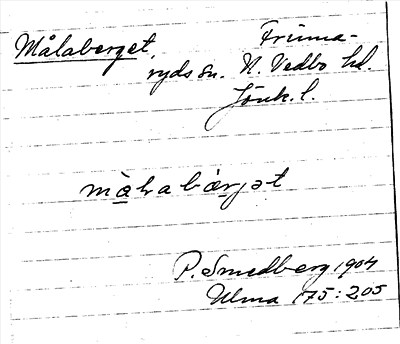 Målaberget, Frinna-
ryds sn. N. Vedbo hd.
Jönk. l.
P. Smedberg 1904
Ulma 175:205